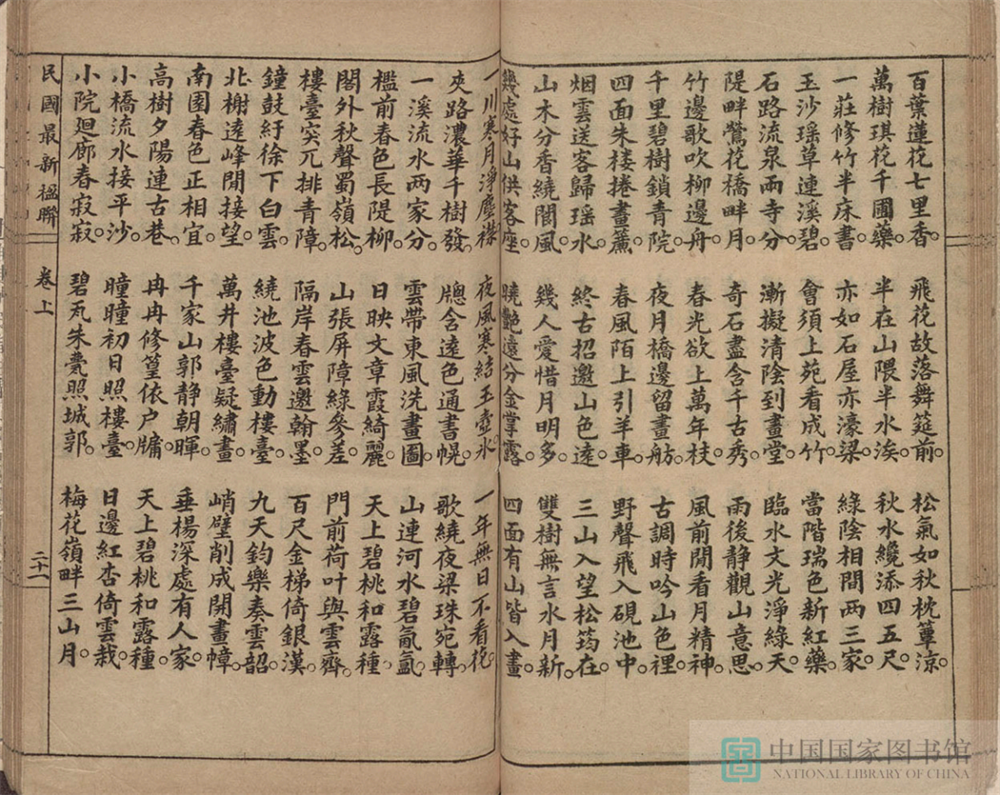 百葉蓮花七里香。 飛花故落舞筵前。 松氣如秋枕簟涼。
萬樹琪花千國藥 半在山隈半水涘 秋水纔添四五尺
一莊修竹半床書 亦如石屋亦濠梁。 綠陰相間兩三家。
玉沙瑶草連溪碧 會須上苑看成竹 當階瑞色新紅藥
石路流泉兩寺分 漸擬清陰到畫堂。 臨水文光淨綠天
隄畔鶯花橋畔月 奇石盡含千古秀 雨後静觀山意思
竹邊歌吹柳邊舟 春光欲上萬年枝。 風前閒看月精神
千里碧樹鎖青院 夜月橋邊留畫舫 古調時吟山色裡
四面朱楼捲畫簾 春風陌上引羊車。 野聲飛入硯池中。
烟雲送客歸瑶水 終古招邀山色遠 三山入望松筠在
山木分香繞閬風 幾人愛惜月明多。 雙樹無言水月新。
幾處好山供客座 曉艷遠分金掌露 四面有山皆入畫
一川寒月淨塵襟 夜風寒結玉壺冰 一年無日不看花。
夾路濃華千樹發 牕含遠色通書幌 歌繞夜梁珠宛轉
一溪流水两家分。 雲帶東風洗畫圖 山連河水碧氤氳
檻前春色長隄柳 日映文章霞綺麗 天上碧桃和露種
閣外秋聲蜀嶺松。 山張屏障綠參差。 門前荷叶與雲齊。
樓臺突兀排青障 隔岸春雲邀翰墨 百尺金梯倚銀漢
鐘鼓紆徐下白雲。 繞池波色動樓臺。 九天鈞樂奏雲韶
北榭遠峰閒接望 萬井樓臺疑繡畫 峭壁削成開畫幛
南園春色正相宜。 千家山郭静朝暉。 垂楊深處有人家。
高樹夕陽連古巷 冉冉修篁依户牖 天上碧桃和露種
小橋流水接平沙。 曈曈初日照樓臺。 日邊紅杏倚雲栽。
小院廻廊春寂寂 碧瓦朱甍照城郭 梅花嶺畔三山月
民國最新楹聯 卷上 二十一
中国国家图书馆
NATIONAL LIBRARY OF CHINA